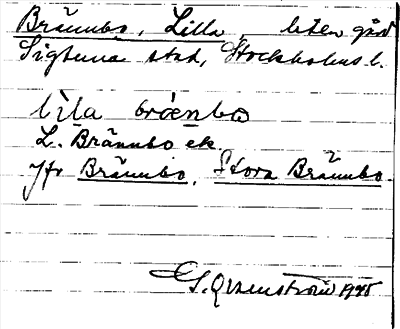 Brännbo, Lilla, liten gård
Sigtuna stad, Stockholms l.
lìla brǽnbo
L. Brännbo ek.
Jfr Brännbo, Stora Brännbo.
1945